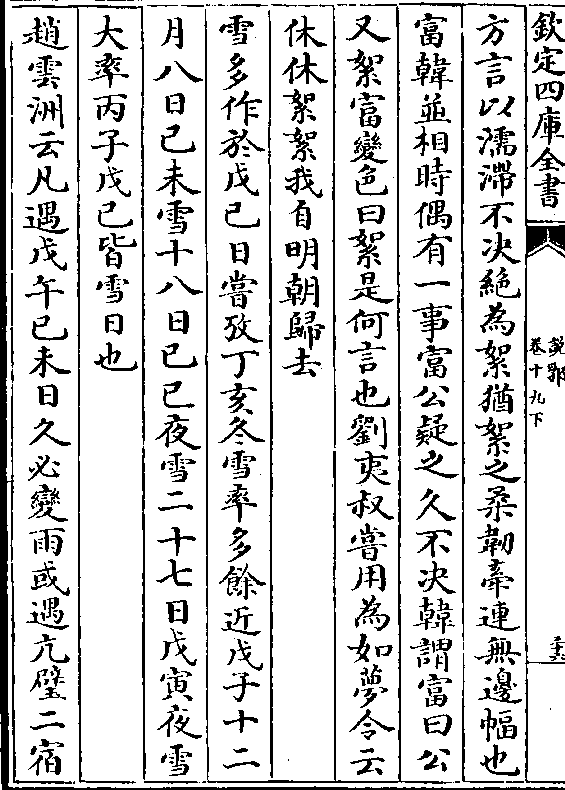 欽定四庫全書
說郛
卷十九下
三十六
方言以濡滯不決絶為絮猶絮之柔韌牽連無邊幅也
富韓並相時偶有一事富公疑之久不決韓謂富曰公
又絮富變色曰絮是何言也劉夷叔嘗用為如夢令云
休休絮絮我自明朝歸去
雪多作於戊己日嘗攷丁亥冬雪率多餘近戊子十二
月八日己未雪十八日己巳夜雪二十七日戊寅夜雪
大率丙子戊己皆雪日也
趙雲洲云凡遇戊午己未日久必變雨或遇亢璧二宿